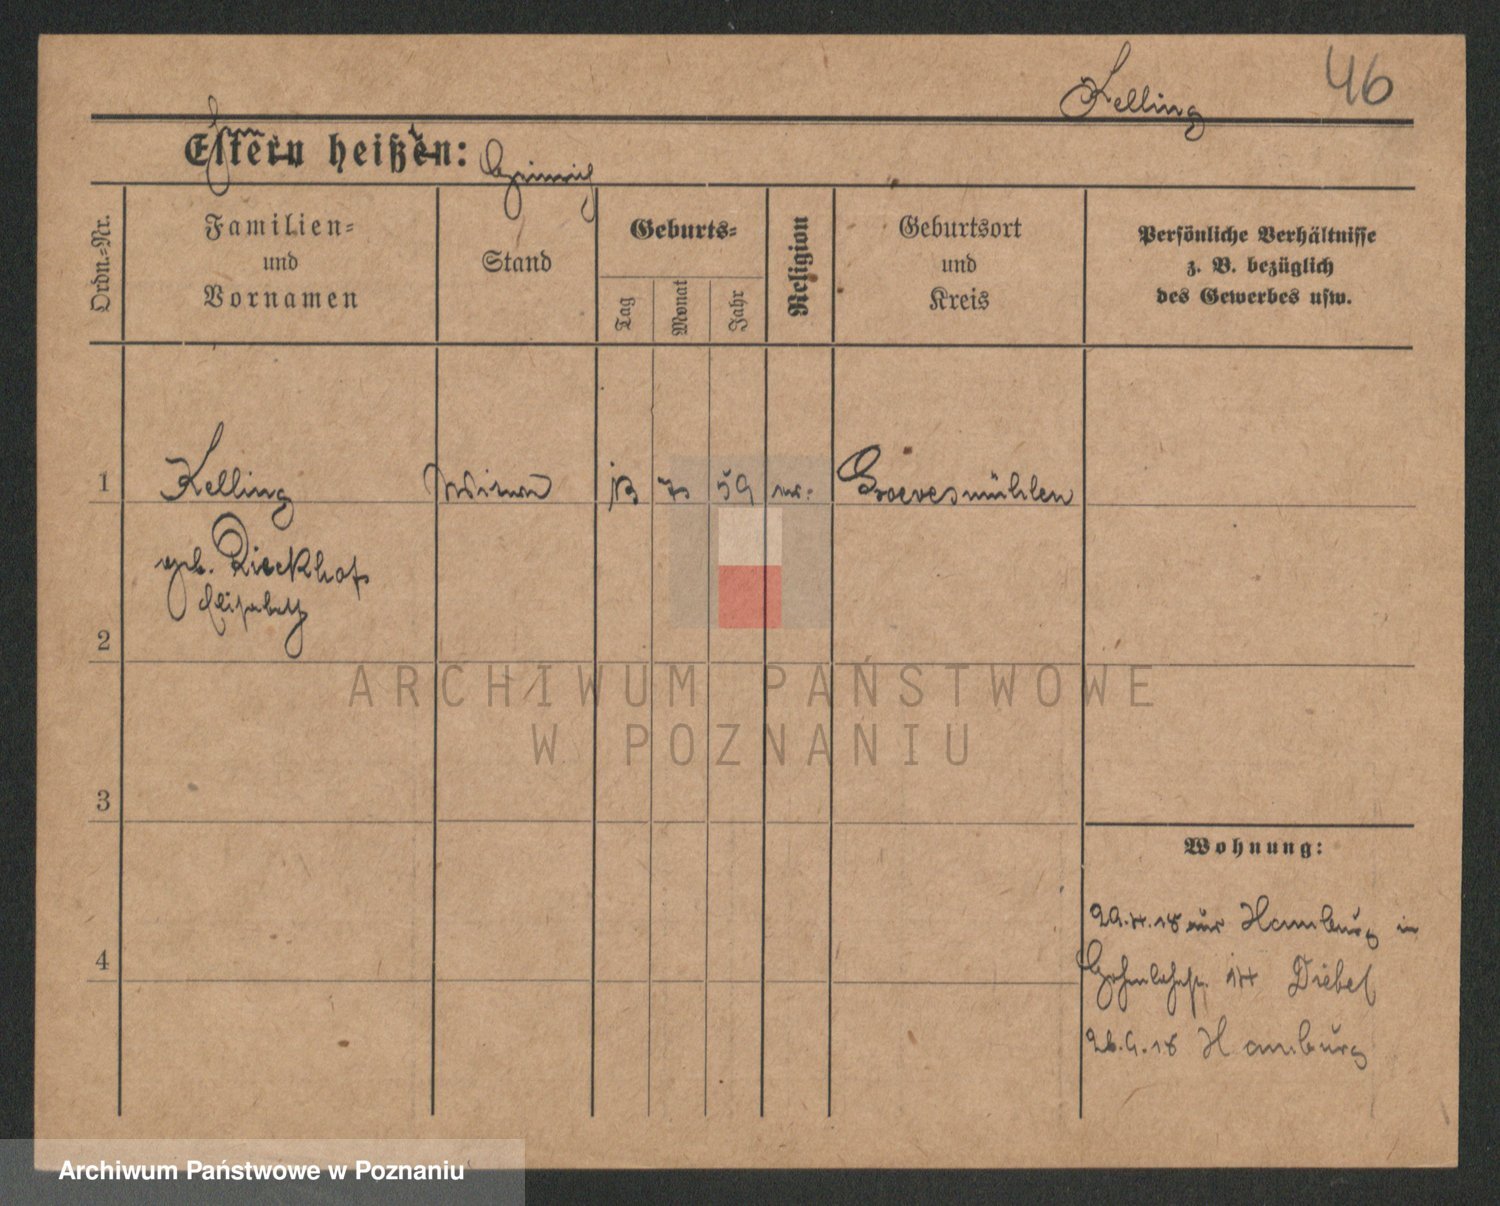 Kelling
46
Eltern heißen: Heinrich
Ordn.-Nr.
Familien-
und
Vornamen
Stand
Geburts-
Tag
Monat
Jahr
Religion
Geburtsort
und
Kreis
Persönliche Verhältnisse
z. B. bezüglich
des Gewerbes usw.
1
Kelling
Witwe
59
Groevesmühlen
geb. Dieckhof
Elisabeth
2
ARCHIWUM PAŃSTWOWE
W POZNANIU
3
Wohnung:
4
29.4.18 aus Hamburg in
14 Diebel
26.9.18 Hamburg
Archiwum Państwowe w Poznaniu